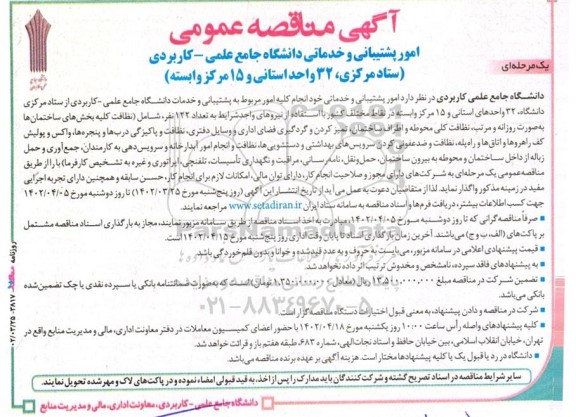 آگهی مناقصه عمومی
امور پشتیبانی و خدماتی دانشگاه جامع علمی - کاربردی
(ستاد مرکزی، ۳۲ واحد استانی و ۱۵ مرکز وابسته)
یک مرحله‌ای
دانشگاه جامع علمی کاربردی در نظر دارد امور پشتیبانی و خدماتی خود انجام کلیه امور مربوط به پشتیبانی و خدمات دانشگاه جامع علمی - کاربردی از ستاد مرکزی
دانشگاه، ۳۲ واحدهای استانی و ۱۵ مرکز وابسته در نقاط مختلف کشور با استفاده از نیروهای واجد شرایط به تعداد ۱۲۲ نفر، شامل (نظافت کلیه بخش‌های ساختمان‌ها
به‌صورت روزانه و مرتب، نظافت کلی محوطه و اطراف ساختمان، تمیز کردن و گردگیری فضای اداری و وسایل دفتری، نظافت و پاکیزگی درب‌ها و پنجره‌ها، واکس و پولیش
کف راهروها و اتاق‌ها و راه‌پله، نظافت و ضدعفونی کردن سرویس‌های بهداشتی و دستشویی‌ها، نظافت و انجام امور آبدارخانه و سرویس‌دهی به کارمندان، جمع‌آوری و حمل
زباله از داخل ساختمان و محوطه به بیرون ساختمان، حمل‌ونقل، نامه‌رسانی، مراقبت و نگهداری تأسیسات، تلفنچی، اپراتوری و غیره به تشخیص کارفرما) را از طریق
مناقصه عمومی یک مرحله‌ای به شرکت‌های دارای مجوز و صلاحیت انجام کار، دارای توان مالی، امکانات لازم برای انجام کار، حسن سابقه و همچنین دارای تجربه اجرایی
مفید در زمینه مذکور واگذار نماید. لذا از متقاضیان دعوت به عمل می‌آید از تاریخ انتشار این آگهی (روز پنج‌شنبه مورخ ۱۴۰۲/۰۳/۲۵) تا روز دوشنبه مورخ ۱۴۰۲/۰۴/۰۵
جهت کسب اطلاعات بیشتر، دریافت فرم‌ها و اسناد مناقصه به سامانه ستاد ایران www.setadiran.ir مراجعه نمایند.
- صرفاً مناقصه‌گرانی که تا روز دوشنبه مورخ ۱۴۰۲/۰۴/۰۵ مبادرت به اخذ اسناد مناقصه از طریق سامانه مزبور نمایند، مجاز به بارگذاری اسناد مناقصه مشتمل
بر پاکت‌های (الف، ب و ج) می‌باشند. آخرین زمان بارگذاری اسناد تا پایان وقت اداری روز پنج‌شنبه مورخ ۱۴۰۲/۰۴/۱۵ است.
- قیمت پیشنهادی اعلامی در سامانه مزبور، می‌بایست به حروف و به عدد قید شده و خوانا و بدون قلم‌خوردگی باشد.
- به پیشنهادهای فاقد سپرده، نامشخص و مخدوش ترتیب اثر داده نخواهد شد.
- تضمین شرکت در مناقصه مبلغ ۱۳،۵۰۰،۰۰۰،۰۰۰ ریال (معادل ۱،۳۵۰،۰۰۰،۰۰۰ تومان) است که به‌صورت ضمانتنامه بانکی یا سپرده نقدی یا چک تضمین شده
بانکی می‌باشد.
- شرکت در مناقصه و دادن پیشنهاد، به معنی قبول اختیارات دستگاه مناقصه‌گزار است.
- کلیه پیشنهادهای واصله رأس ساعت ۱۰:۰۰ روز یکشنبه مورخ ۱۴۰۲/۰۴/۱۸ با حضور اعضای کمیسیون معاملات در دفتر معاونت اداری، مالی و مدیریت منابع واقع در
تهران، خیابان انقلاب اسلامی، بین خیابان حافظ و استاد نجات‌الهی، شماره ۶۸۳، طبقه هفتم باز و قرائت خواهد شد.
- دانشگاه در رد یا قبول یک یا کلیه پیشنهادها مختار است. هزینه آگهی بر عهده برنده مناقصه می‌باشد.
سایر شرایط مناقصه در اسناد تصریح گشته و شرکت‌کنندگان باید مدارک را پس از اخذ، به قید قبولی امضاء نموده و در پاکت‌های لاک و مهر شده تحویل نمایند.
دانشگاه جامع علمی - کاربردی، معاونت اداری، مالی و مدیریت منابع
۰۲/۰۳/۲۵-۳۸۱۷
روزنامه
ParsNamadData
۰۲۱-۸۸۳۴۹۶۷۰-۵